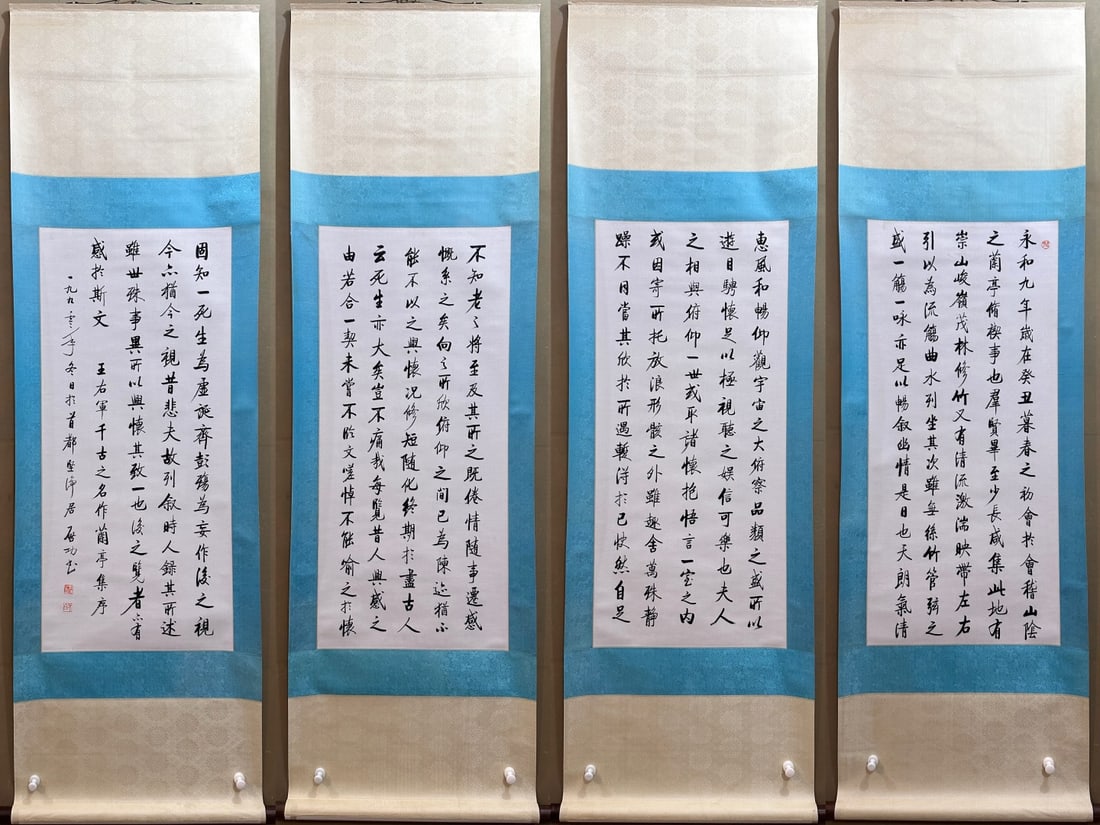 永和九年歲在癸丑暮春之初會於會稽山陰
之蘭亭脩禊事也羣賢畢至少長咸集此地有
崇山峻嶺茂林修竹又有清流激湍映帶左右
引以為流觴曲水列坐其次雖無絲竹管弦之
盛一觴一咏亦足以暢叙幽情是日也天朗氣清
惠風和暢仰觀宇宙之大俯察品類之盛所以
遊目騁懷足以極視聽之娛信可樂也夫人
之相與俯仰一世或取諸懷抱悟言一室之內
或因寄所托放浪形骸之外雖趣舍萬殊靜
躁不同當其欣於所遇暫得於己快然自足
不知老之將至及其所之既倦情隨事遷感
慨系之矣向之所欣俯仰之間已為陳迹猶不
能不以之興懷況修短隨化終期於盡古人
云死生亦大矣豈不痛哉每覽昔人興感之
由若合一契未嘗不臨文嗟悼不能喻之於懷
固知一死生為虛誕齊彭殤為妄作後之視
今亦猶今之視昔悲夫故列敘時人錄其所述
雖世殊事異所以興懷其致一也後之覽者亦有
感於斯文 王右軍千古之名作蘭亭集序
一九九零年冬日於首都堅淨居 啟功書